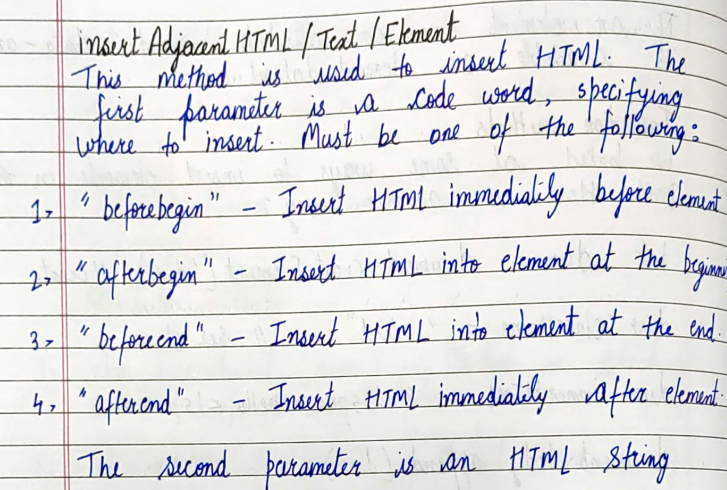 insert Adjacent HTML / Text / Element
This method is used to insert HTML. The
first parameter is a code word, specifying
where to insert. Must be one of the following:
1, "beforebegin" - Insert HTML immediatily before element
2, "afterbegin" - Insert HTML into element at the beginni
3, "beforeend" - Insert HTML into element at the end.
4, "afterend" - Insert HTML immediatily after element.
The second parameter is an HTML string